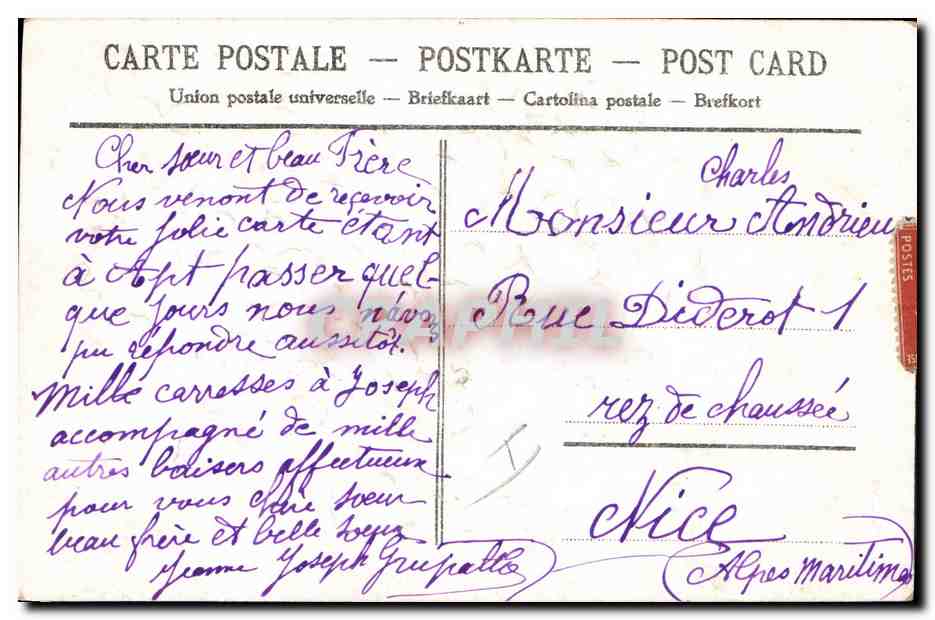 CARTE POSTALE — POSTKARTE — POST CARD
Union postale universelle — Briefkaart — Cartolina postale — Brefkort
Cher sœur et beau Frère
Nous venont de reçevoir
votre jolie carte étant
à Apt passer quel-
que jours nous n'avons
pu répondre aussitôt.
Mille carresses à Joseph
accompagné de mille
autres baisers affectueux
pour vous chère sœur
beau frère et belle sœur
Jeanne Joseph
Charles
Monsieur Andrieu
Rue Diderot 1
rez de chaussée
Nice
(Alpes maritimes)
POSTES
CPAPHIL